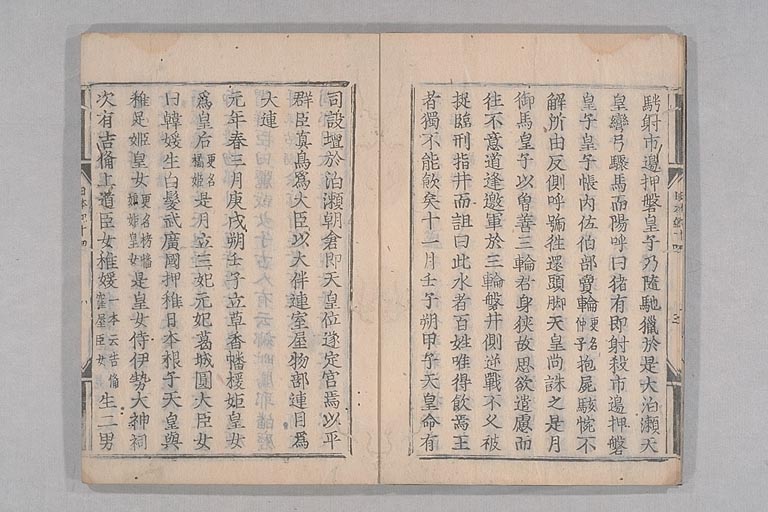 騁射市邊押磐皇子乃隨馳獵於是大泊瀬天
皇彎弓驟馬而陽呼曰猪有即射殺市邊押磐
皇子皇子帳內佐伯部賣輪更名仲子抱屍駭惋不
解所由反側呼號徃還頭脚天皇尚誅之是月
御馬皇子以曾善三輪君身狹故思欲遣慮而
徃不意道逢邀軍於三輪磐井側逆戰不久被
捉臨刑指井而詛曰此水者百姓唯得飲焉王
者獨不能飲矣十一月壬子朔甲子天皇命有
司設壇於泊瀬朝倉即天皇位遂定宮焉以平
群臣真鳥爲大臣以大伴連室屋物部連目爲
大連
元年春三月庚戌朔壬子立草香幡梭姬皇女
爲皇后更名橘姬是月立三妃元妃葛城圓大臣女
曰韓媛生白髮武廣國押稚日本根子天皇與
稚足姬皇女更名栲幡娘姬皇女是皇女侍伊勢大神祠
次有吉備上道臣女稚媛一本云吉備窪屋臣女生二男
日本紀十四
八